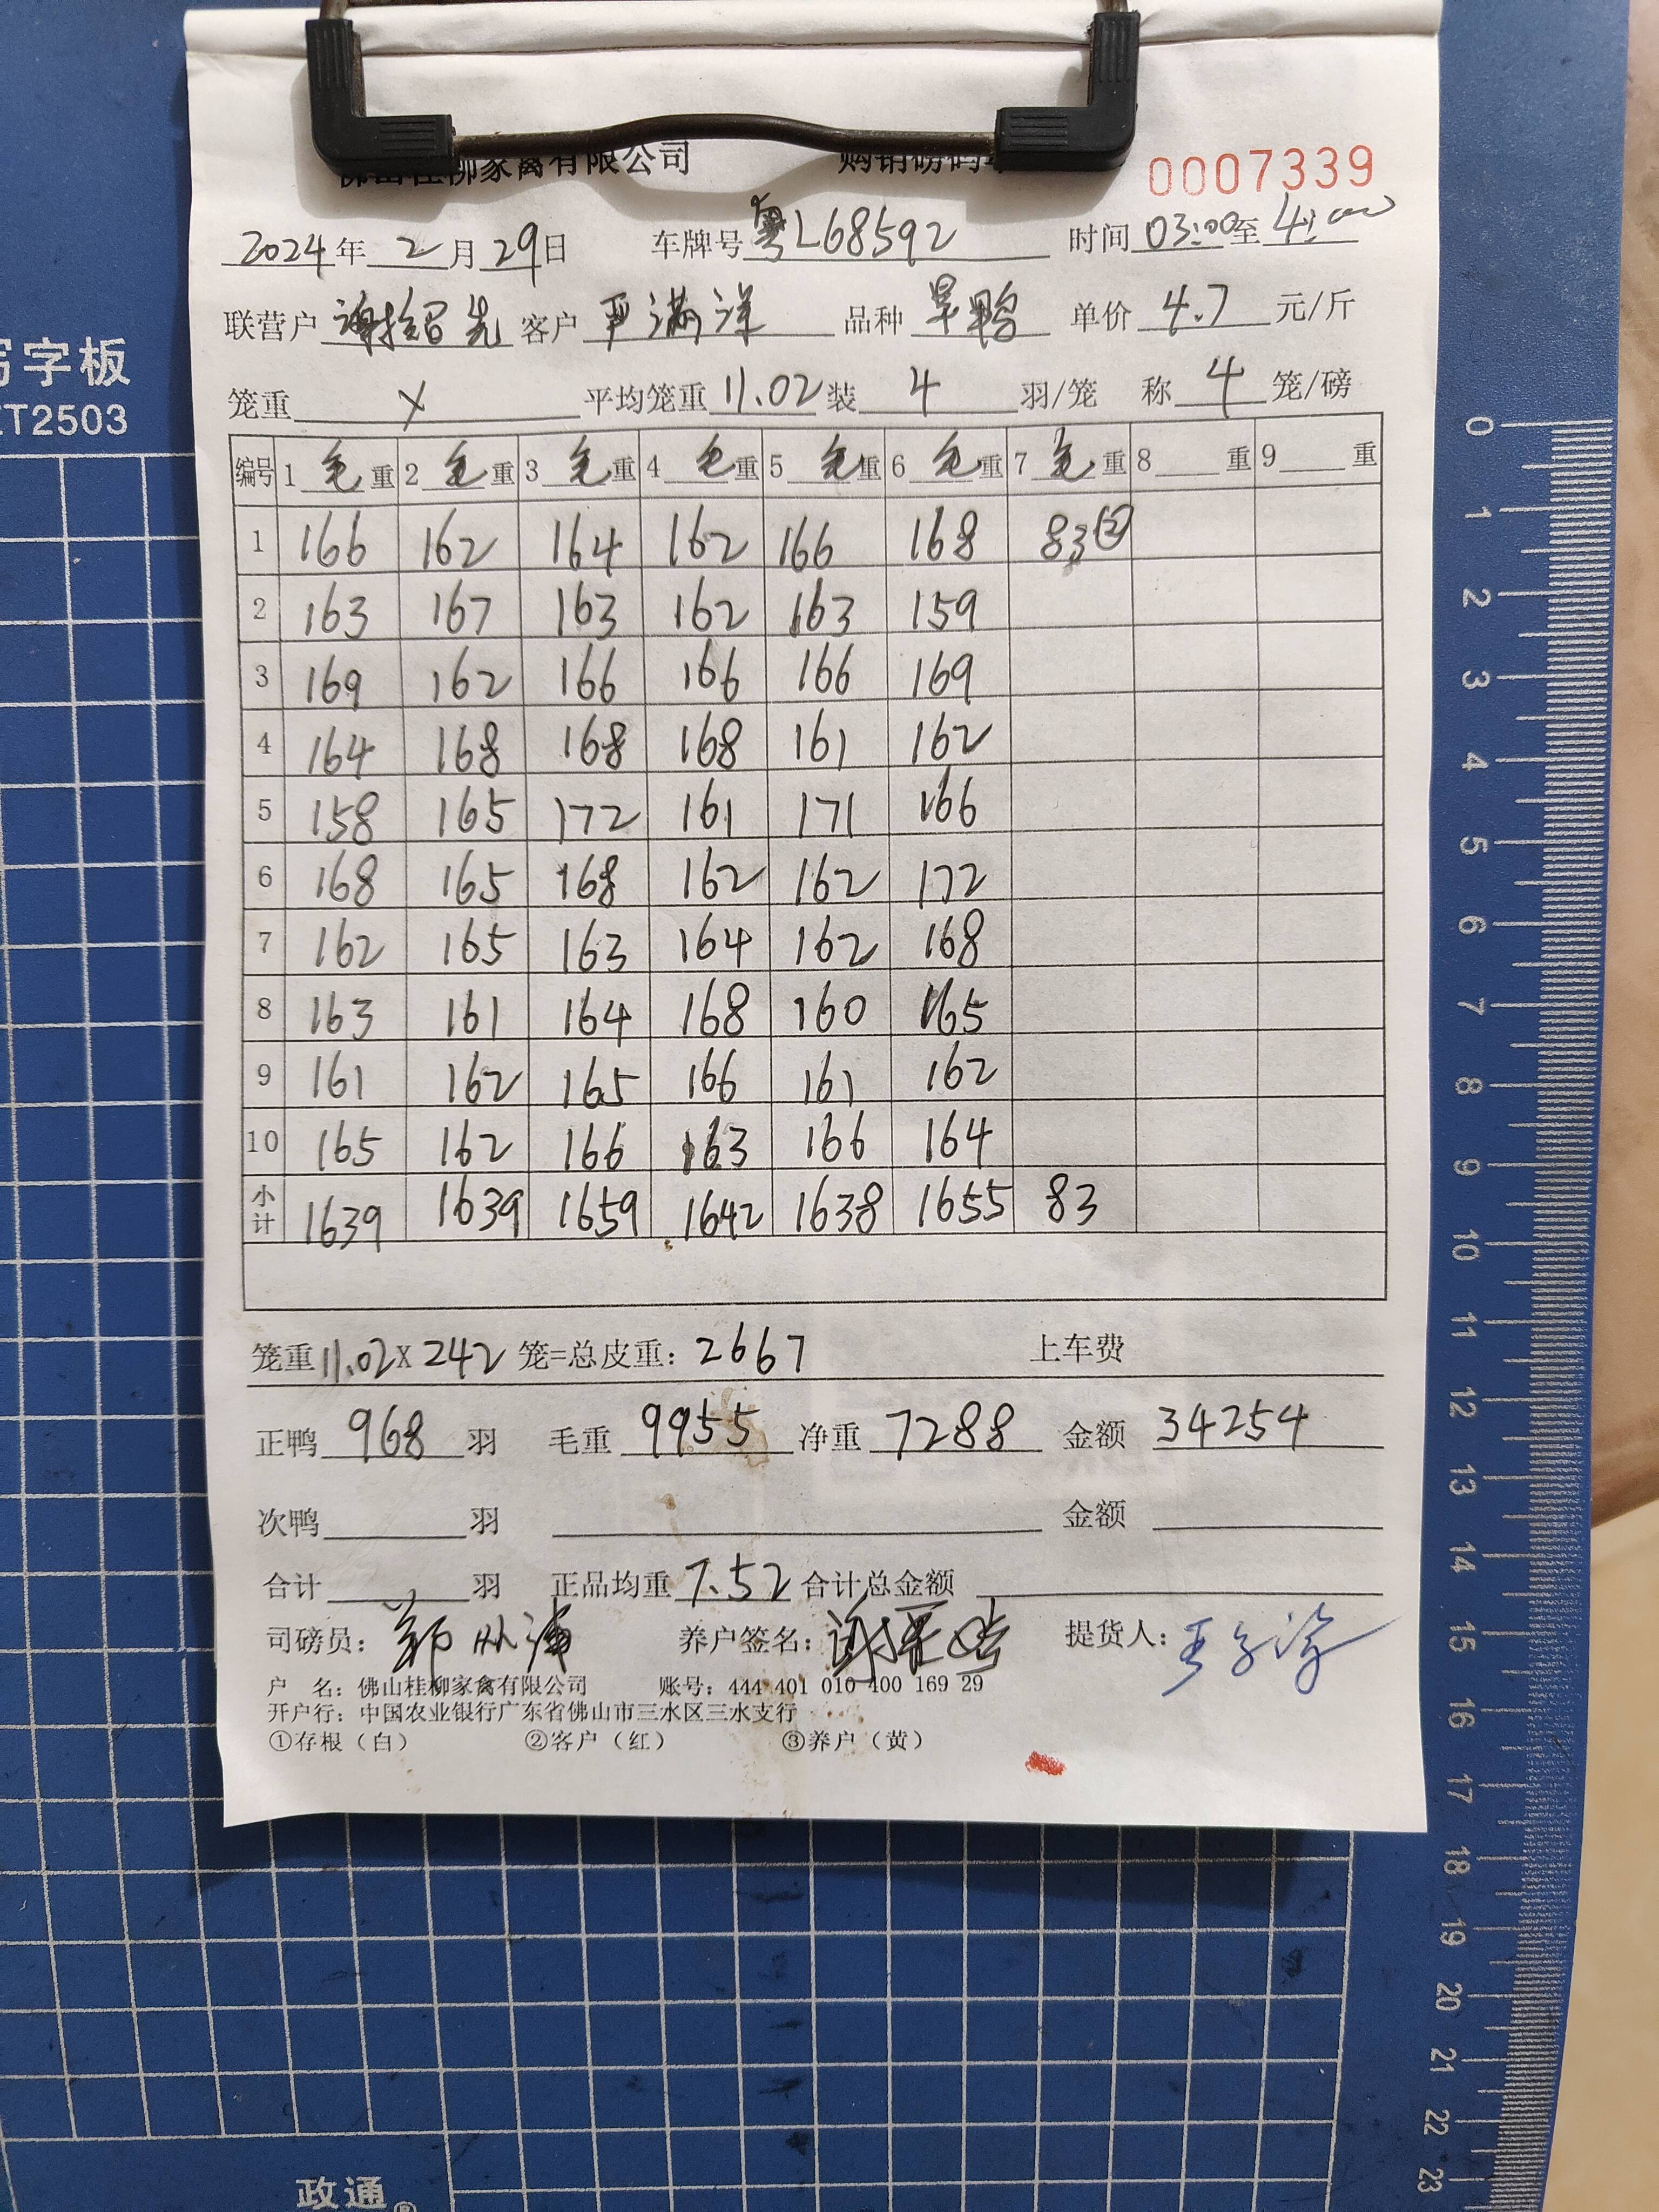 佛山桂柳家禽有限公司 购销磅码单 0007339
2024年 2 月 29 日 车牌号 粤L68592 时间 03:00 至 4:00
联营户 谢绍先 客户 严满洋 品种 旱鸭 单价 4.7 元/斤
笼重 X 平均笼重 11.02 装 4 羽/笼 称 4 笼/磅
编号 1 毛 重 2 毛 重 3 毛 重 4 毛 重 5 毛 重 6 毛 重 7 毛 重 8 重 9 重
1 166 162 164 162 166 168 83②
2 163 167 163 162 163 159
3 169 162 166 166 166 169
4 164 168 168 168 161 162
5 158 165 172 161 171 166
6 168 165 168 162 162 172
7 162 165 163 164 162 168
8 163 161 164 168 160 165
9 161 162 165 166 161 162
10 165 162 166 163 166 164
小计 1639 1639 1659 1642 1638 1655 83
笼重 11.02 X 242 笼=总皮重: 2667 上车费
正鸭 968 羽 毛重 9955 净重 7288 金额 34254
次鸭 羽 金额
合计 羽 正品均重 7.52 合计总金额
司磅员: 养户签名: 提货人:
户 名: 佛山桂柳家禽有限公司 账号: 444 401 010 400 169 29
开户行: 中国农业银行广东省佛山市三水区三水支行
①存根（白） ②客户（红） ③养户（黄）
写字板
ZT2503
0 1 2 3 4 5 6 7 8 9 10 11 12 13 14 15 16 17 18 19 20 21 22 23
政通®